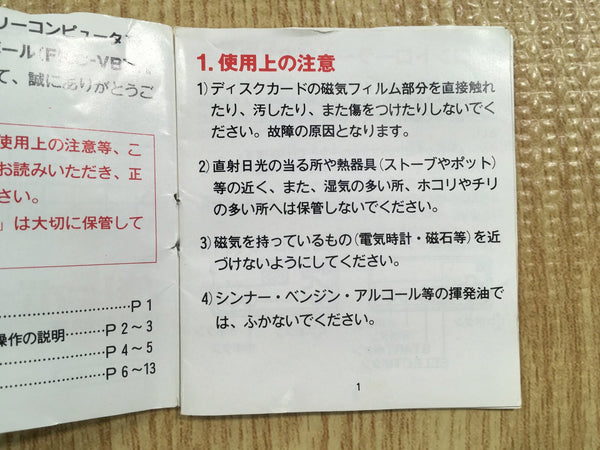 リーコンピュータ
ボール(F
て、誠にありがとうご
使用上の注意等、こ
お読みいただき、正
さい。
」は大切に保管して
P 1
操作の説明 P 2〜3
P 4〜5
P 6〜13
1. 使用上の注意
1)ディスクカードの磁気フィルム部分を直接触れ
たり、汚したり、また傷をつけたりしないでく
ださい。故障の原因となります。
2)直射日光の当る所や熱器具(ストーブやポット)
等の近く、また、湿気の多い所、ホコリやチリ
の多い所へは保管しないでください。
3)磁気を持っているもの(電気時計・磁石等)を近
づけないようにしてください。
4)シンナー・ベンジン・アルコール等の揮発油で
は、ふかないでください。
1